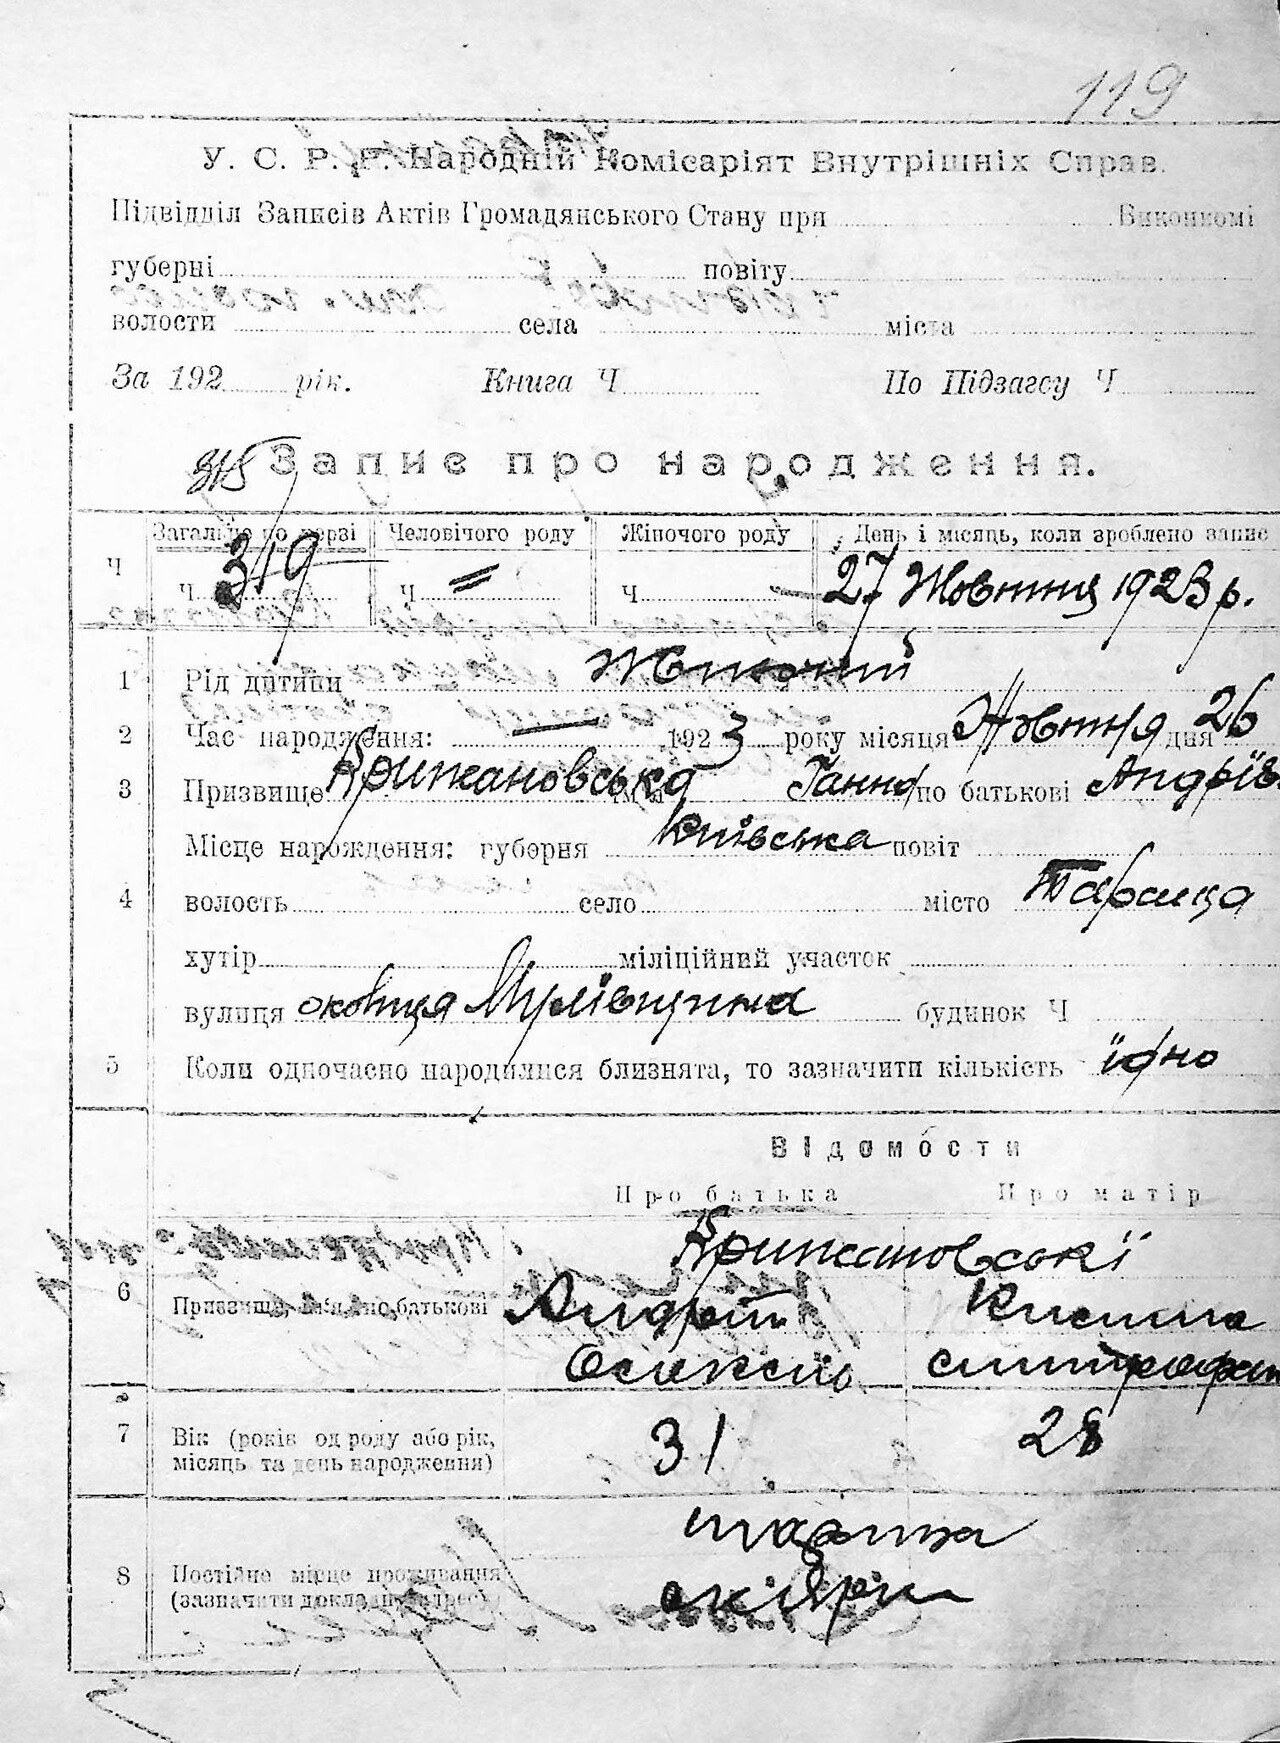 119
У. С. Р. Р. Народній Комісаріят Внутрішніх Справ.
Підвідділ Записів Актів Громадянського Стану при Виконкомі
губерні повіту
волости села міста
За 192 рік. Книга Ч По Підзагсу Ч
315 Запис про народження.
Загально по черзі Человічого роду Жіночого роду День і місяць, коли зроблено запис
Ч Ч 319 Ч " Ч 27 Жовтня 1923 р.
1 Рід дитини Жіночий
2 Час народження: — 1923 року місяця Жовтня дня 26
3 Призвище Крижановська Ім'я Ганна по батькові Андріїв.
Місце нарождення: губерня Київська повіт
4 волость село місто Тараща
хутір міліційний участок
вулиця околиця будинок Ч
5 Коли одночасно народилися близнята, то зазначити кількість їдно
Відомости
Про батька Про матір
Крижановські
6 Призвище, ім'я, по батькові Андрій
7 Вік (років од роду або рік, 31 28
місяць та день народження)
8 Постійне місце проживання
(зазначити докладн. адрес)